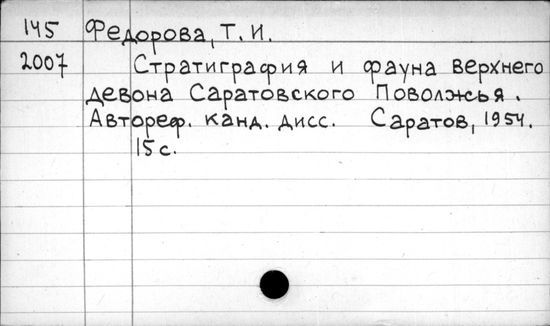 145 Федорова, Т. И.
2007 Стратиграфия и фауна верхнего
девона Саратовского Поволжья.
Автореф. канд. дисс. Саратов, 1954.
15 с.